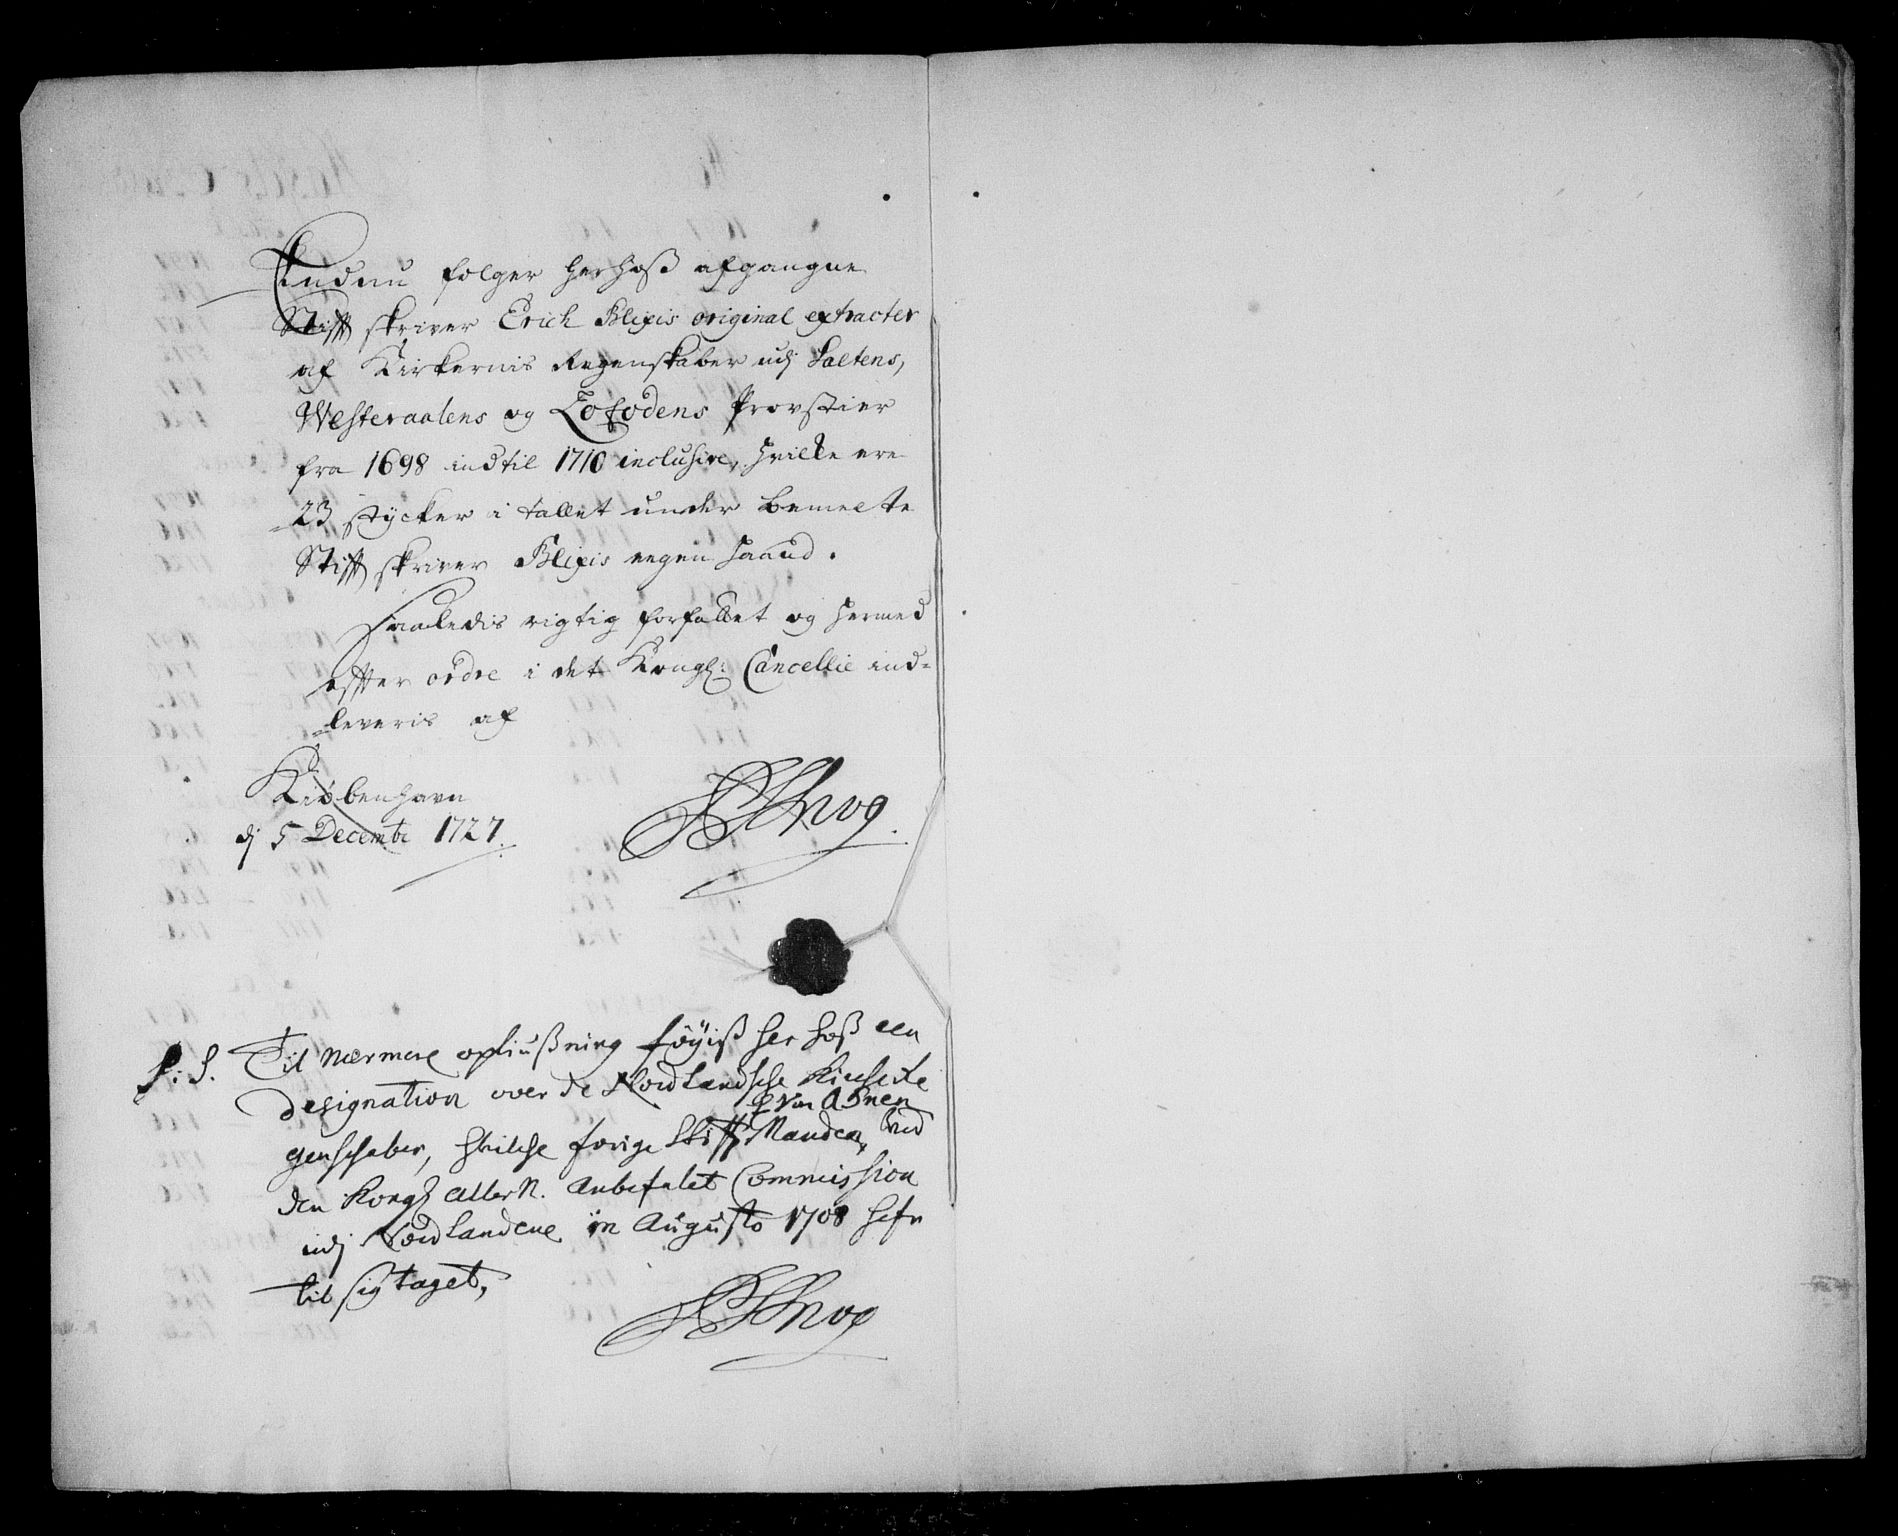 Endnu følger herhoß afgangne
Stifftskriver Erich Blixis original extracter
af Kirkernis Regenskaber udj Saltens,
Westeraalens og Lofodens Provstier
fra 1698 indtil 1710 inclusive, hvilke ere
23 stÿcker i tallet under bemelte
Stifftskriver Blixis eegen haand.
Saaledis rigtig forfattet og hermed
effter ordre i det Kongl: Cancellie ind-
leveris af
Kiøbenhavn
dj 5 Decembr 1727.
Schnog
P: S. Til nærmere opliußning føÿiß her hoß een
designation over de Nordlandsche Kirche
genschaber, hvilche forige Stifft Manden, ved
von Ahnen
den Kongl allern. Anbefalet Commission
udj Nordlandene in Augusto 1708 hafr
til sig taget,
Schnog